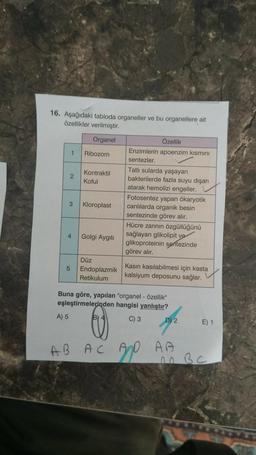 16. Aşağıdaki tabloda organeller ve bu organellere ait
özellikler verilmiştir.
Organel Özellik
1 Ribozom Enzimlerin apoenzim kısmını
sentezler.
2 Kontraktil
Koful
Tatlı sularda yaşayan
bakterilerde fazla suyu dışarı
atarak hemolizi engeller.
3 Kloroplast
Fotosentez yapan ökaryotik
canlılarda organik besin
sentezinde görev alır.
4 Golgi Aygıtı
Hücre zarının özgüllüğünü
sağlayan glikolipit ve
glikoproteinin sentezinde
görev alır.
5 Düz
Endoplazmik
Retikulum
Kasın kasılabilmesi için kasta
kalsiyum deposunu sağlar.
Buna göre, yapılan "organel - özellik"
eşleştirmelerinden hangisi yanlıştır?
A) 5 B) 4 C) 3 D) 2 E) 1
AB AC AD AA
BC